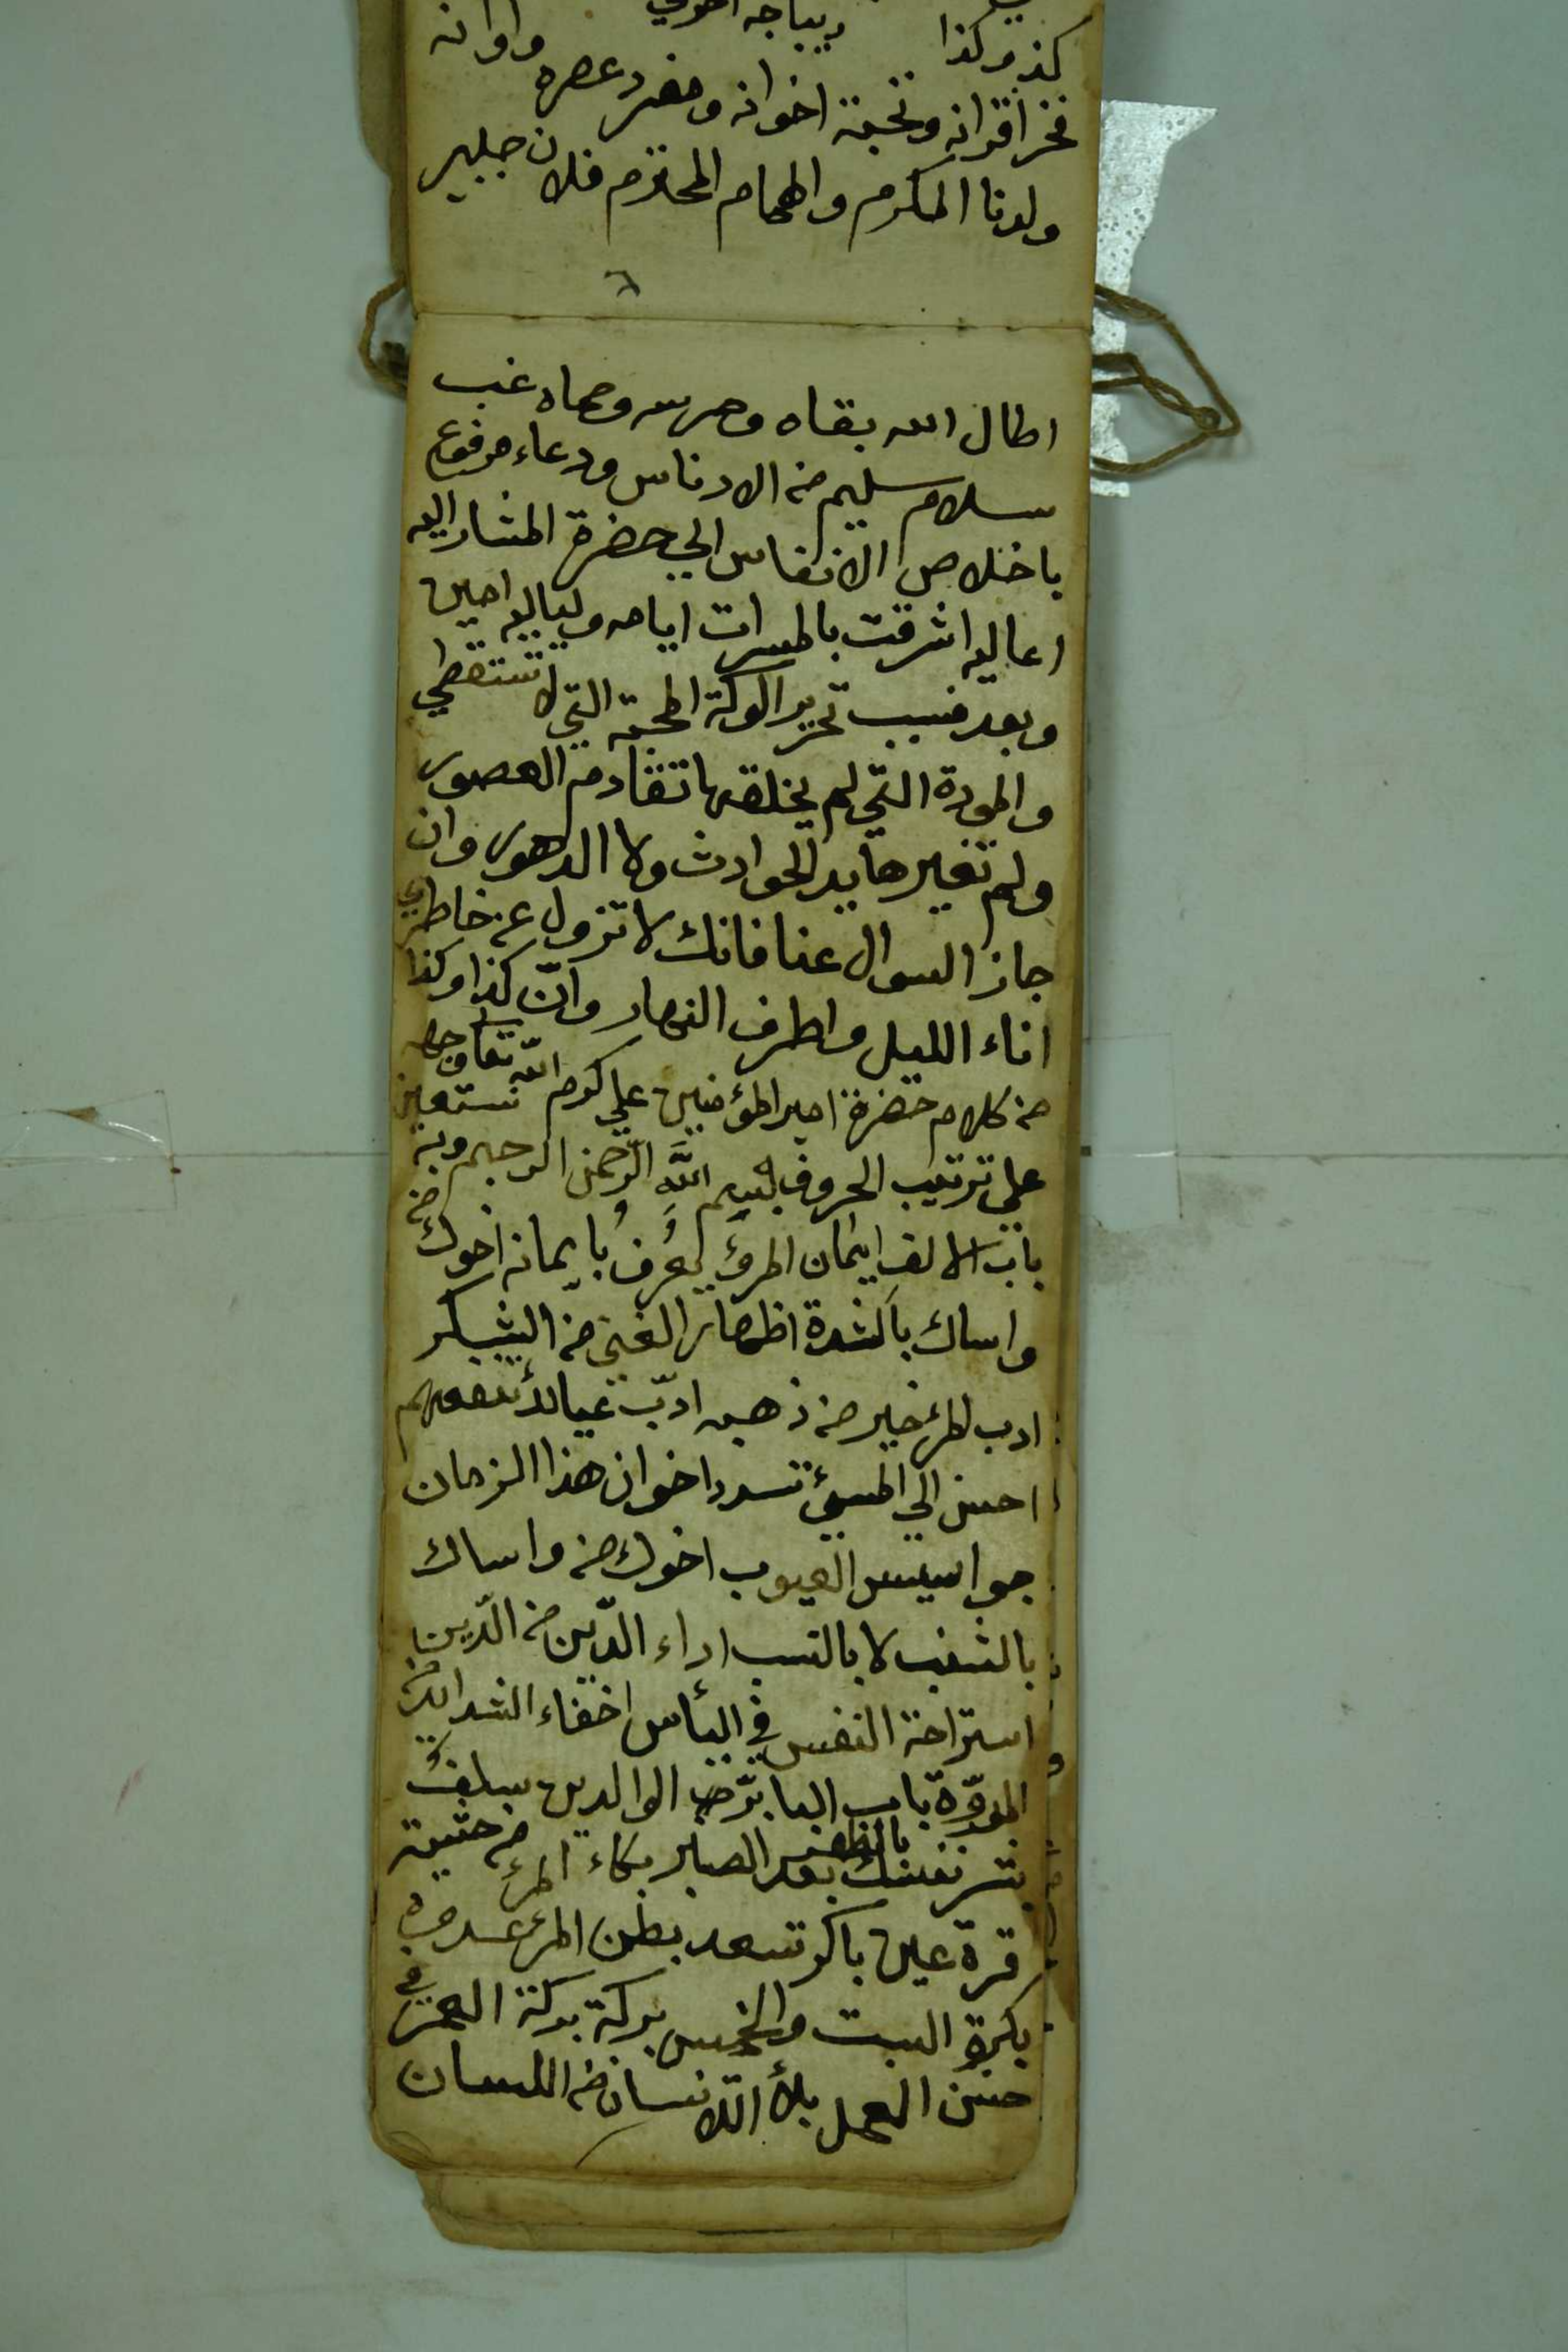 كذ وكذا ديباجه اخري
فخر اقرانه ونخبة اخوانه ومفرد عصره واوانه
ولدنا المكرم والهمام المحترم فلان جلبي
٦
اطال الله بقاه وحرسه وحماه غب
سلام سليم من الادناس ودعاء مرفوع
باخلاص الانفاس الي حضرة المشار اليه
اعاليه اشرقت بالمسرات ايامه ولياليه امين
وبعد فسبب تحرير الوكة المحبة التي لا تنقطي
والمودة التي لم يخلقها تقادم العصور
ولم تغيرها يد الحوادث ولا الدهور وان
جاز السوال عنا فانك لا تزول عن خاطري
اناء الليل واطرف النهار وانّ كذا وكذا
من كلام حضرة امير المؤمنين علي كرم الله تعا وجهه
علي ترتيب الحروف بسم الله الرّحمن الرحيم وبه نستعين
باب الالف ايمان المرؤ يعرف بايمانه اخوك من
واساك بالشدة اظهار الغني من الشكر
ادب المرء خير من ذهبه ادّب عيالك تنفعهم
احسن الي المسيئ تسدد اخوان هذا الزمان
جواسيس العيوب اخوك من واساك
بالنشب لا بالنسب اداء الدّين من الدّين
استراحة النفس في اليأس اخفاء الشدائد من
المروّة باب البا برّك الوالدين سلفٌ
بشر نفسك بالظفر بعد الصبر بكاء المرء من خشية
قرة عين باكر تسعد بطن المرء عدوه
بكرة السبت والخميس بركة بركة العمر في
حسن العمل بلاء الانسان من اللسان